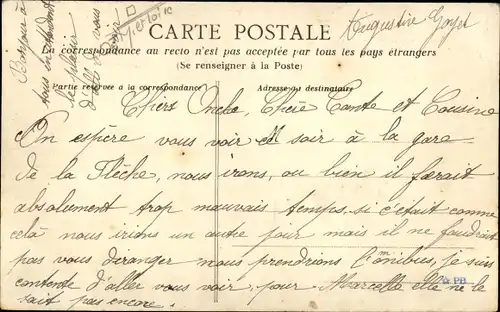 Augustine
CARTE POSTALE
La correspondance au recto n'est pas acceptée par tous les pays étrangers
(Se renseigner à la Poste)
Partie réservée à la correspondance
Adresse au destinataire
Chers Oncle, Chère Tante et Cousine
On espère vous voir ce soir à la gare
de la Flèche, nous irons, ou bien il faerait
absolument trop mauvais temps, si c'était comme
celà nous irions un autre jour mais il ne faudrait
pas vous déranger nous prendrions l'omnibus, je suis
contente d'aller vous voir, pour Marcelle elle ne le
sait pas encore.
Bonjour à
tous en attendant
le plaisir
d'all de vous
voir
PB